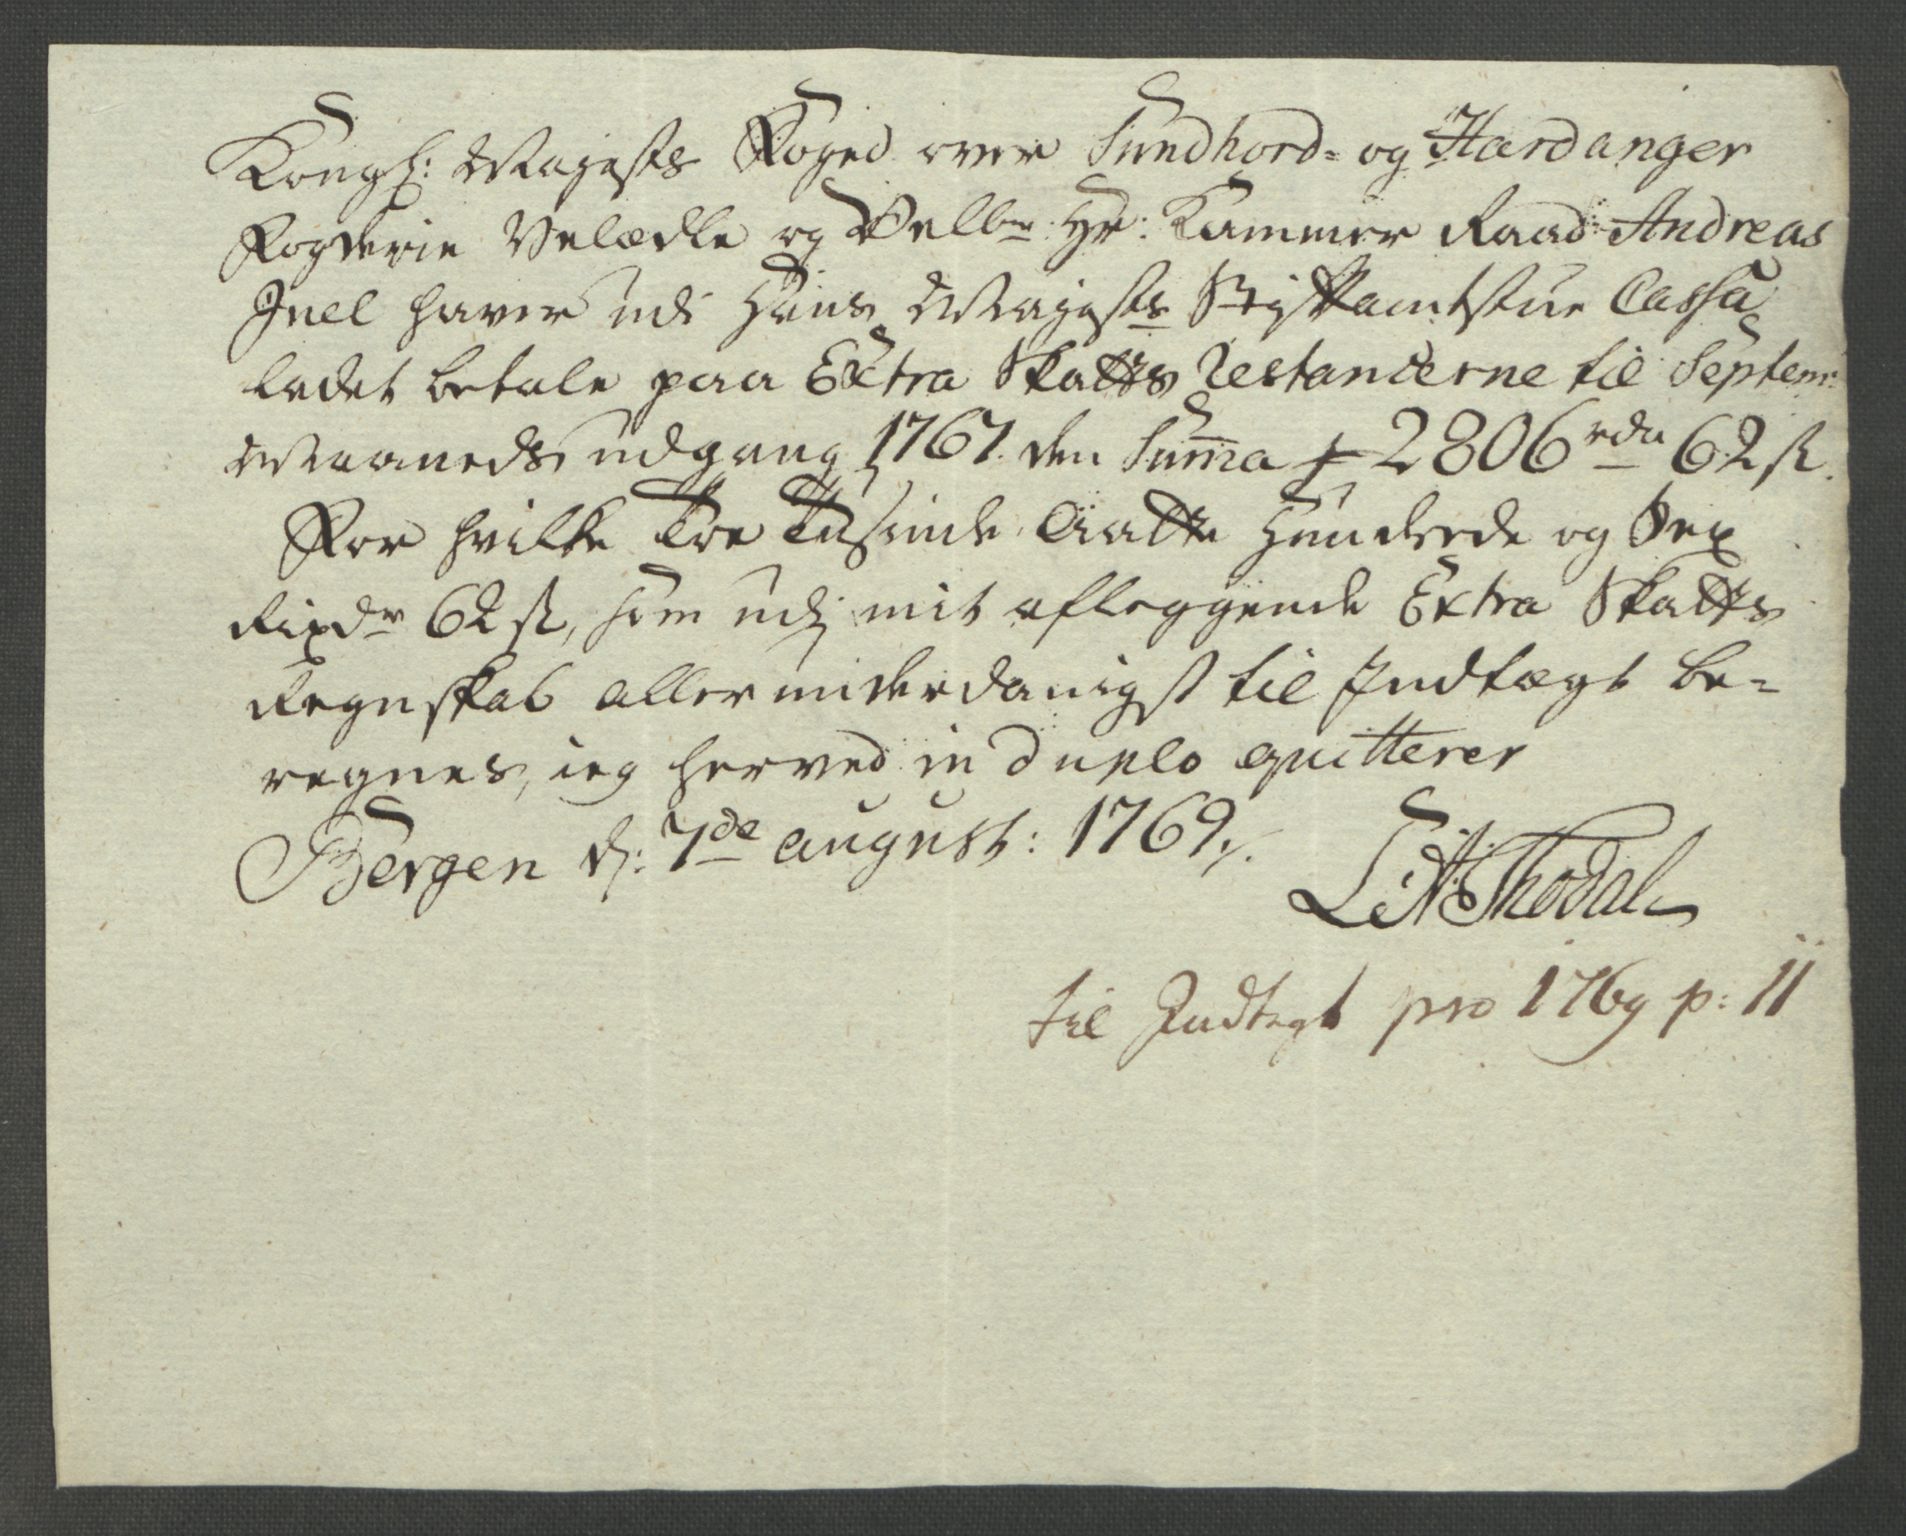 Kongl: Majests Foged over Sundhord- og Hardanger
Fogderie Velædle og Velbr Hr: Kammer Raad Andreas
Juel haver udi Hans Majests Stiftamtstue Cassa
ladet betale paa Extra Skatts Restancerne til Septem:
Maaneds udgang 1767. den Suma 2806 rdr 62 ß.
For hvilke Toe Tusinde Aatte Hunderde og Sex
Rixdr 62 ß, som udj mit aflæggende Extra Skatts
Regnskab allerunderdanigst til Indtægt be-
regnes, ieg herved in duplo quitterer
Bergen d: 7de august: 1769.
L A Thodal
til Indtegt pro 1769 p: 11